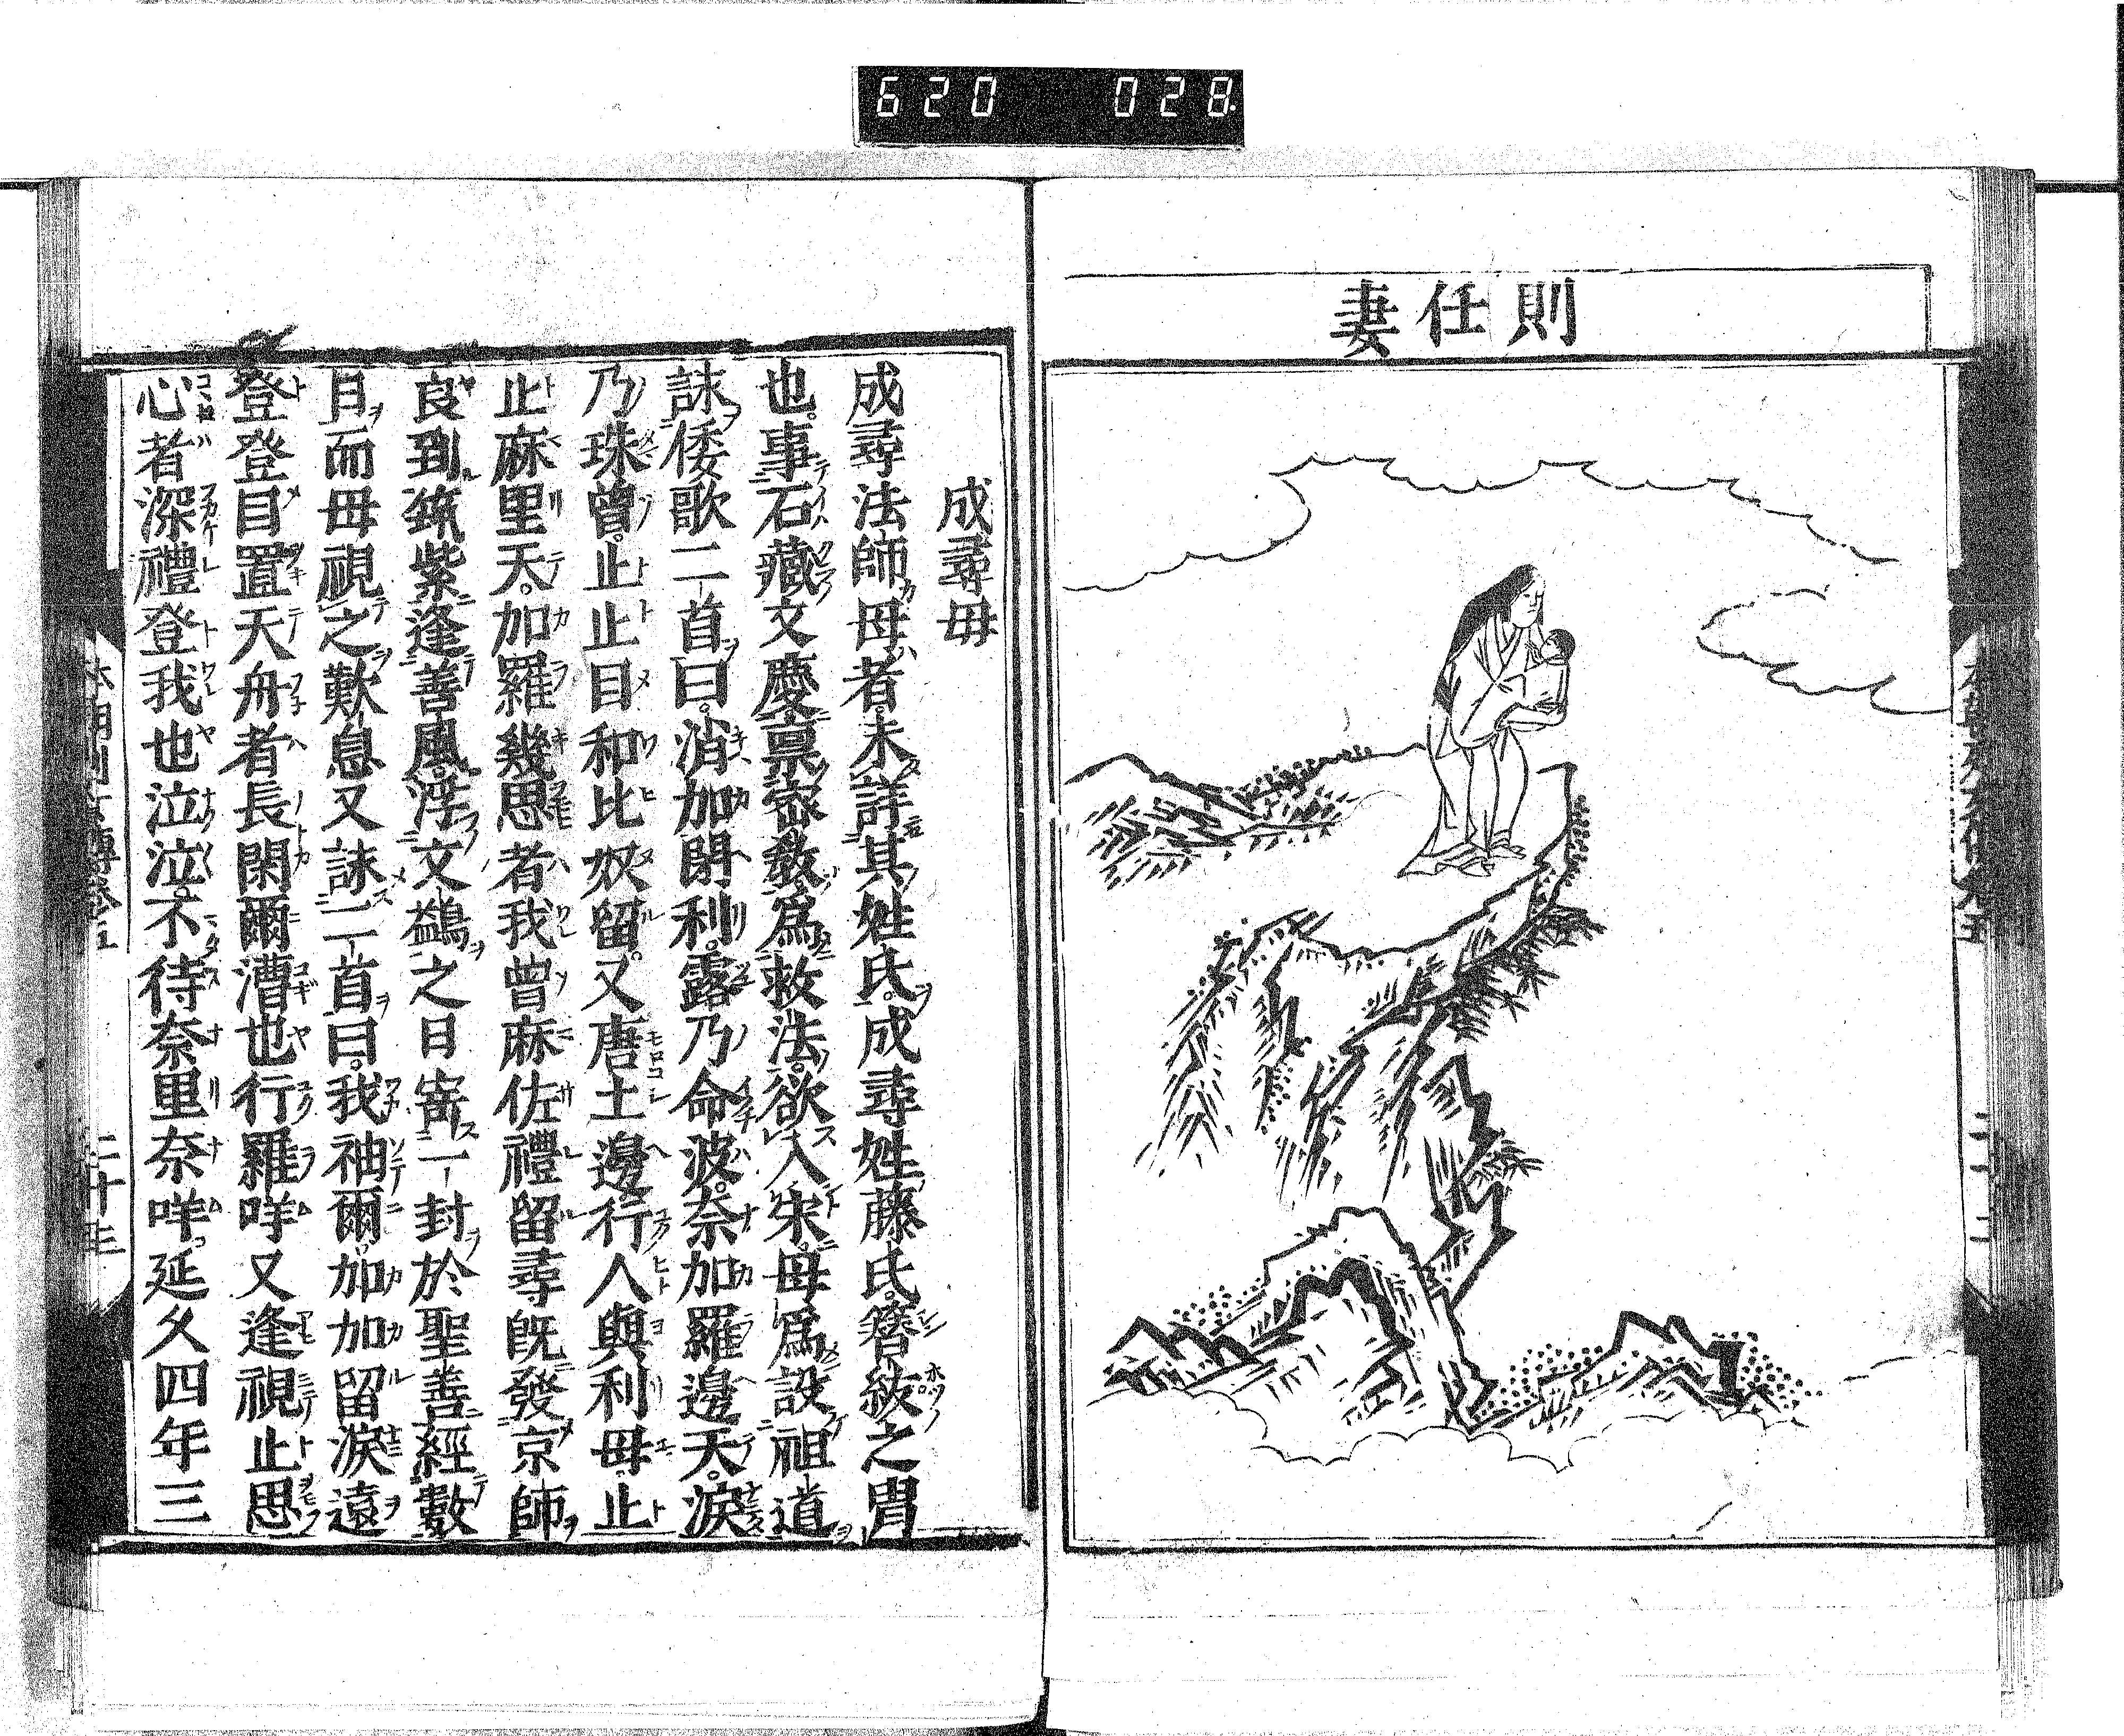 620 028
則任妻
成尋母
成尋法師母者未詳其姓氏成尋姓藤氏簪紱之冑
也事石藏文慶稟密敎爲救法欲入宋母爲設祖道
詠倭歌二首曰消加閉利露乃命波奈加羅邊天淚
乃珠曾止止目和比奴留又唐土邊行人與利母止
止麻里天加羅幾思者我曾麻佐禮留尋既發京師
良到筑紫逢善風浮文鷁之日寄一封於聖善經數
月而母視之歎息又詠二首曰我袖爾加加留淚遠
登登目置天舟者長閑爾漕也行羅咩又逢視止思
心者深禮登我也泣泣不待奈里奈咩延久四年三